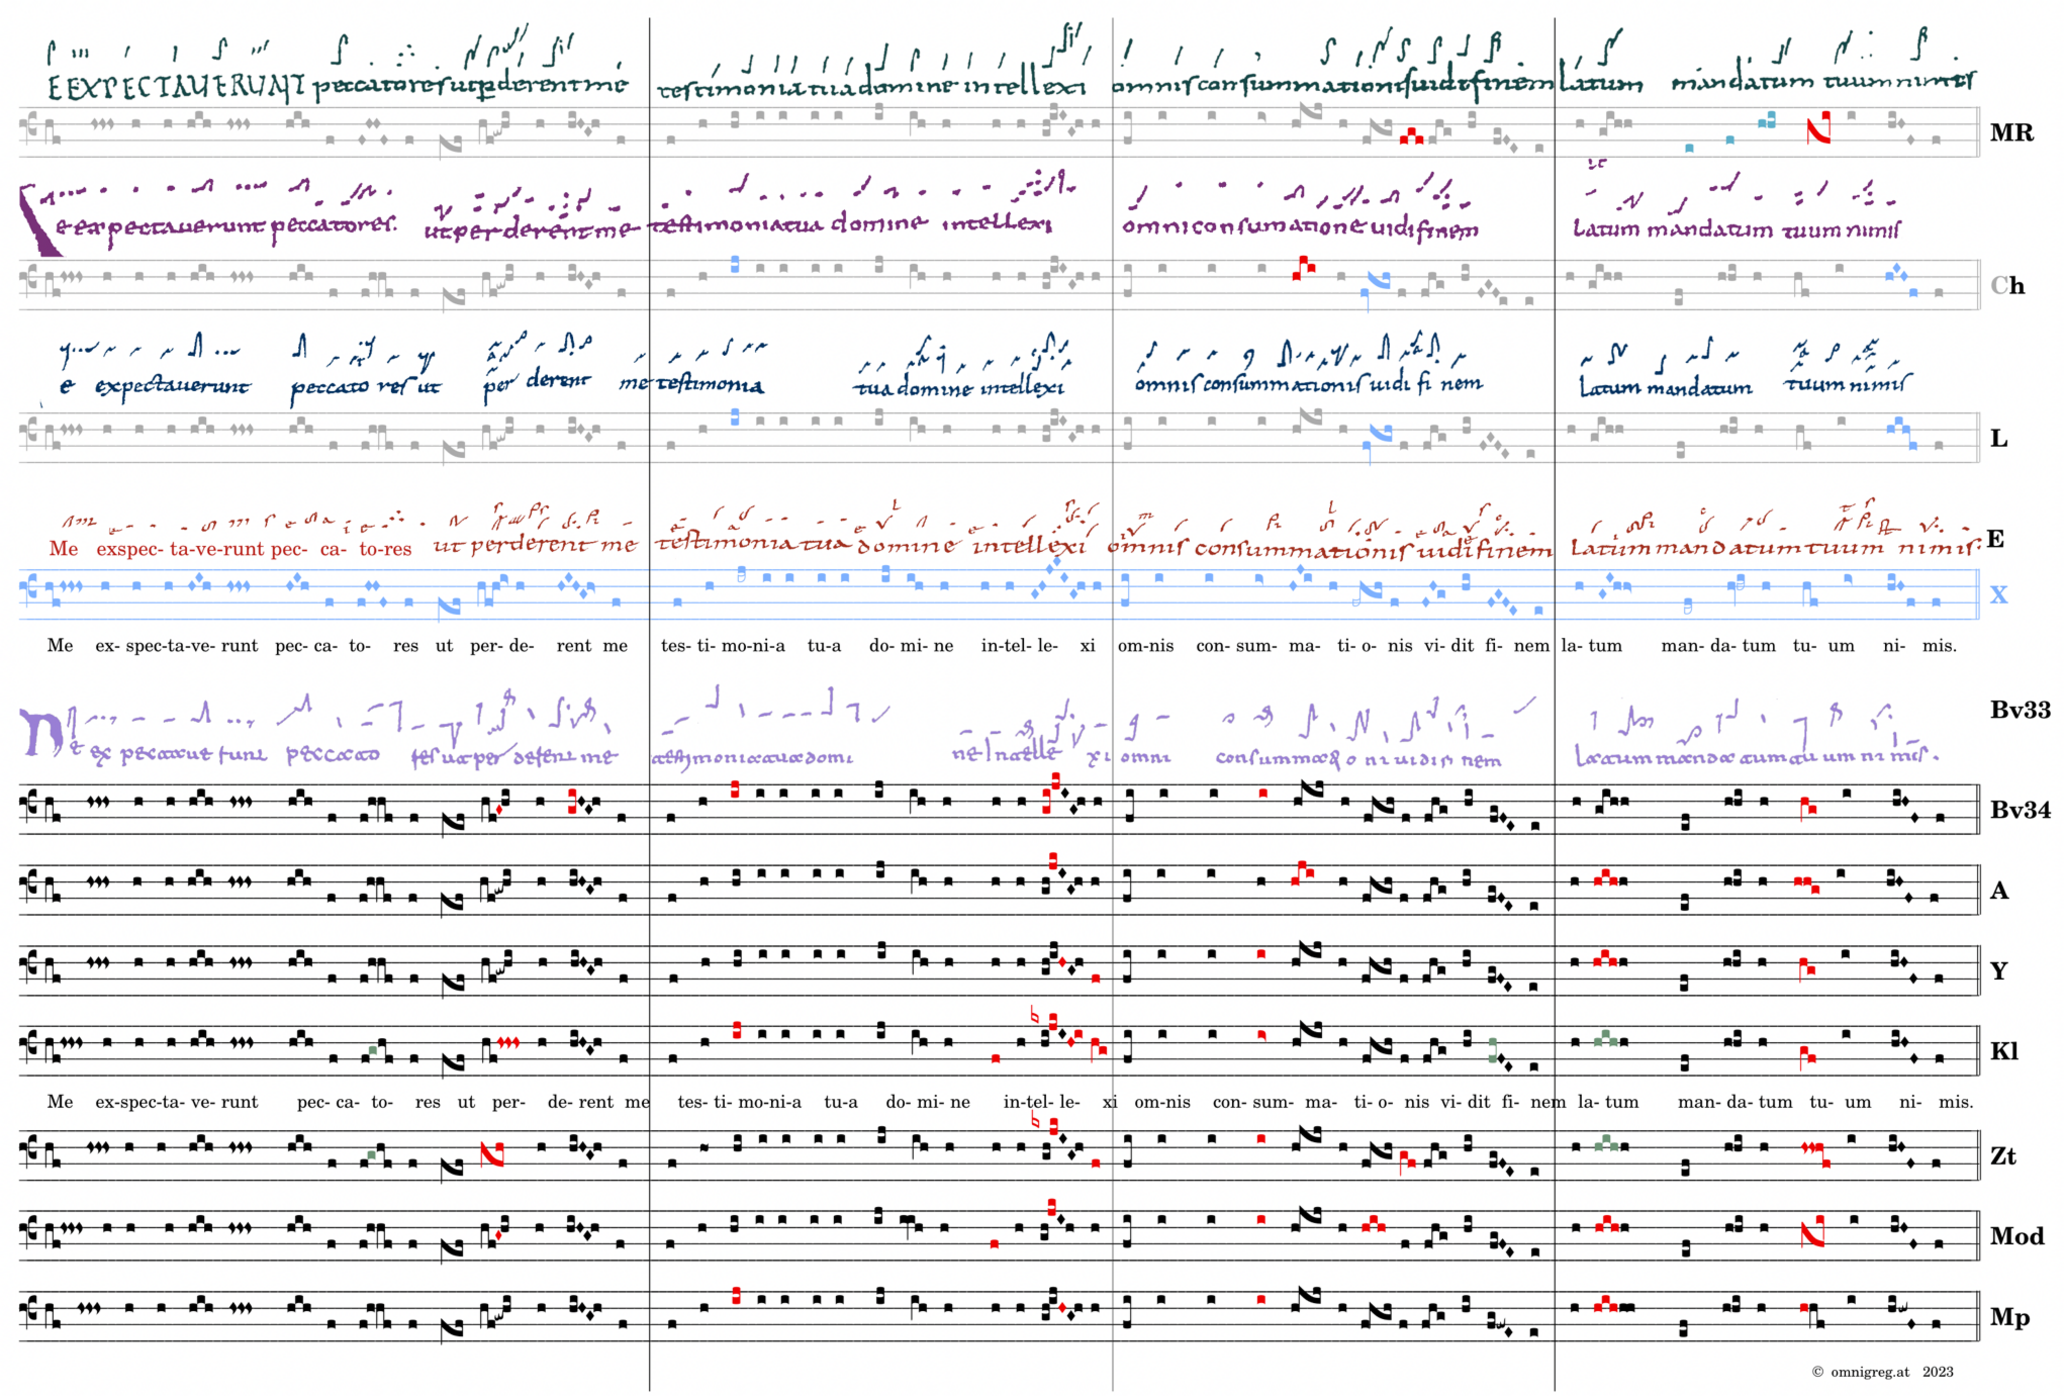 E EXPECTAUERUNT peccatores ut perderent me testimonia tua domine intellexi omnis consummationis uidi finem latum mandatum tuum nimis
MR
e expectauerunt peccatores. ut perderent me testimonia tua domine intellexi omni consumatione uidi finem Latum mandatum tuum nimis
Ch
e expectauerunt peccato res ut per derent me testimonia tua domine intellexi omnis consummationis uidi fi nem Latum mandatum tuum nimis
L
Me exspec- ta-ve-runt pec- ca- to-res ut perderent me testimonia tua domine intellexi omnis consummationis uidi finem Latum mandatum tuum nimis.
E
X
Me ex- spec-ta-ve- runt pec- ca- to- res ut per- de- rent me tes- ti- mo-ni-a tu-a do- mi- ne in-tel- le- xi om-nis con- sum- ma- ti- o- nis vi- dit fi- nem la- tum man- da- tum tu- um ni- mis.
Bv33
omni
Bv34
A
Y
Kl
Me ex-spec-ta- ve- runt pec- ca- to- res ut per- de- rent me tes- ti- mo-ni-a tu-a do- mi- ne in-tel- le- xi om-nis con- sum- ma- ti- o- nis vi- dit fi- nem la- tum man- da- tum tu- um ni- mis.
Zt
Mod
Mp
© omnigreg.at 2023